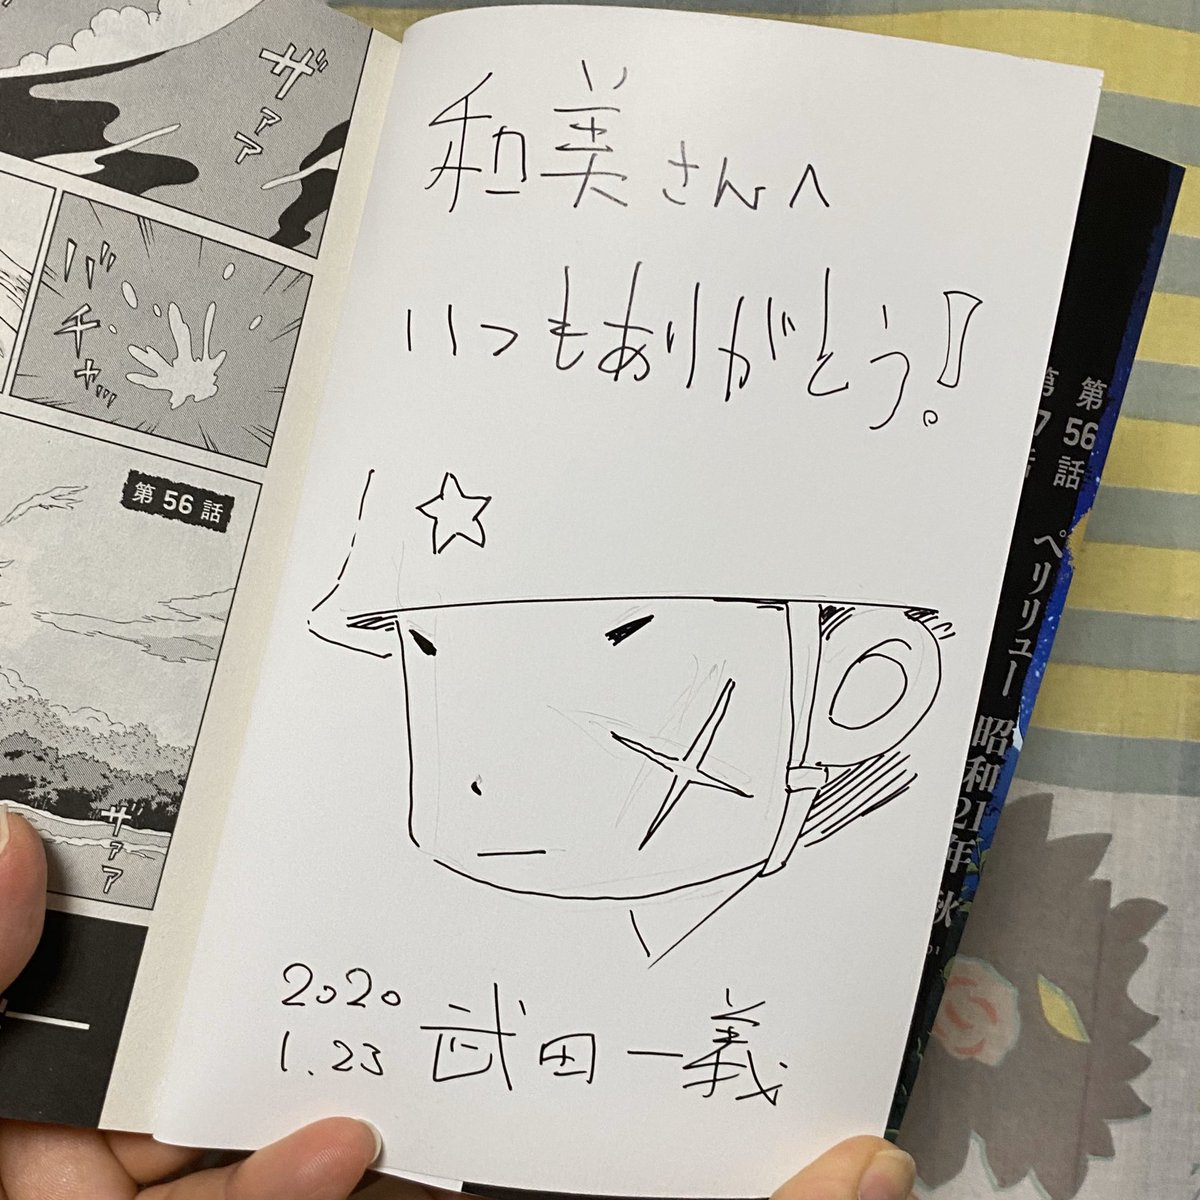 和美さんへ
いつもありがとう!
2020
1.23
武田一義
ザァァ
バチャッ
第56話
ザァァ
第56話
ペリリュー
昭和21年
秋